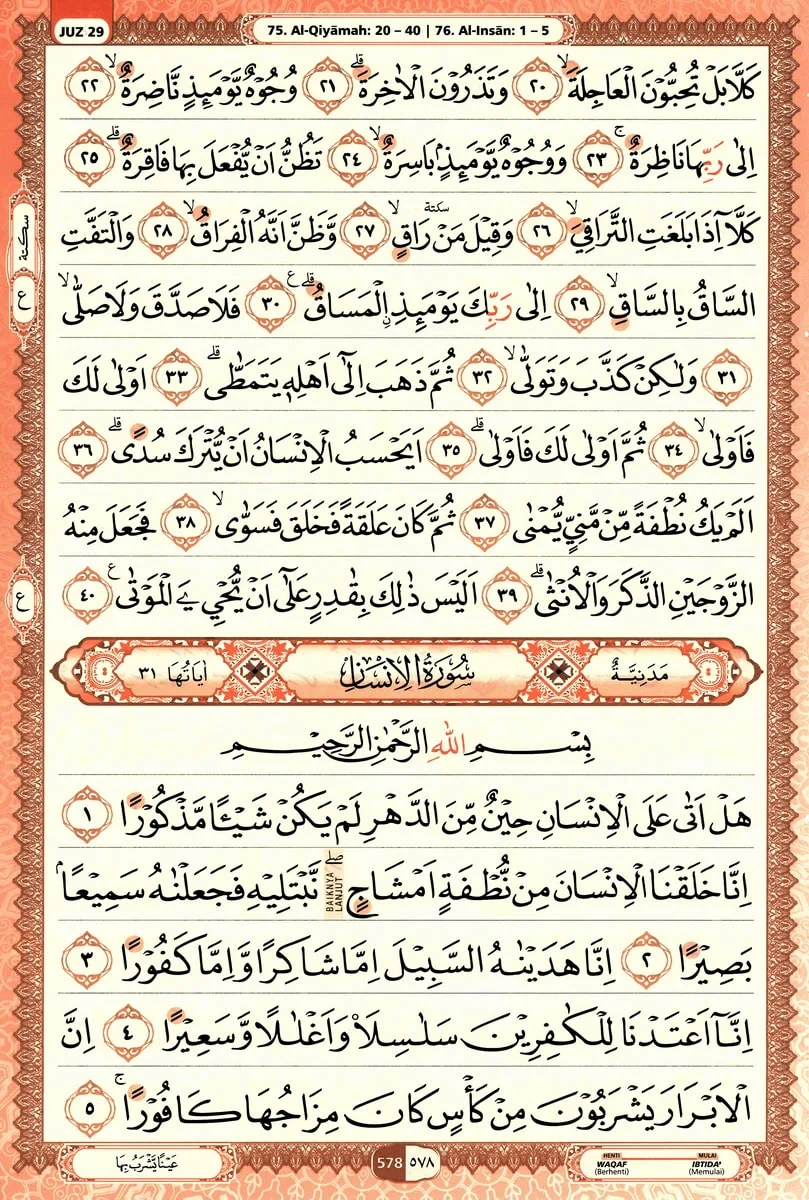 JUZ 29
75. Al-Qiyāmah: 20 – 40 | 76. Al-Insān: 1 – 5
كَلَّا بَلْ تُحِبُّوْنَ الْعَاجِلَةَۙ ٢٠ وَتَذَرُوْنَ الْاٰخِرَةَۗ ٢١ وُجُوْهٌ يَّوْمَىِٕذٍ نَّاضِرَةٌۙ ٢٢
اِلٰى رَبِّهَا نَاظِرَةٌۚ ٢٣ وَوُجُوْهٌ يَّوْمَىِٕذٍۢ بَاسِرَةٌۙ ٢٤ تَظُنُّ اَنْ يُّفْعَلَ بِهَا فَاقِرَةٌۗ ٢٥
كَلَّآ اِذَا بَلَغَتِ التَّرَاقِيَۙ ٢٦ وَقِيْلَ مَنْ ۜرَاقٍۙ ٢٧ وَّظَنَّ اَنَّهُ الْفِرَاقُۙ ٢٨ وَالْتَفَّتِ
السَّاقُ بِالسَّاقِۙ ٢٩ اِلٰى رَبِّكَ يَوْمَىِٕذِ ِۨالْمَسَاقُۗ ࣖ ٣٠ فَلَا صَدَّقَ وَلَا صَلّٰىۙ
٣١ وَلٰكِنْ كَذَّبَ وَتَوَلّٰىۙ ٣٢ ثُمَّ ذَهَبَ اِلٰٓى اَهْلِهٖ يَتَمَطّٰىۗ ٣٣ اَوْلٰى لَكَ
فَاَوْلٰىۙ ٣٤ ثُمَّ اَوْلٰى لَكَ فَاَوْلٰىۗ ٣٥ اَيَحْسَبُ الْاِنْسَانُ اَنْ يُّتْرَكَ سُدًىۗ ٣٦
اَلَمْ يَكُ نُطْفَةً مِّنْ مَّنِيٍّ يُّمْنٰى ٣٧ ثُمَّ كَانَ عَلَقَةً فَخَلَقَ فَسَوّٰىۙ ٣٨ فَجَعَلَ مِنْهُ
الزَّوْجَيْنِ الذَّكَرَ وَالْاُنْثٰىۗ ٣٩ اَلَيْسَ ذٰلِكَ بِقٰدِرٍ عَلٰٓى اَنْ يُّحْيِ َۧ الْمَوْتٰى ࣖ ٤٠
مَدَنِيَّةٌ سُوْرَةُ الْاِنْسَانِ اٰيَاتُهَا ٣١
بِسْمِ اللّٰهِ الرَّحْمٰنِ الرَّحِيْمِ
هَلْ اَتٰى عَلَى الْاِنْسَانِ حِيْنٌ مِّنَ الدَّهْرِ لَمْ يَكُنْ شَيْـًٔا مَّذْكُوْرًا ١
اِنَّا خَلَقْنَا الْاِنْسَانَ مِنْ نُّطْفَةٍ اَمْشَاجٍۖ نَّبْتَلِيْهِ فَجَعَلْنٰهُ سَمِيْعًاۢ
BAIKNYA LANJUT
بَصِيْرًا ٢ اِنَّا هَدَيْنٰهُ السَّبِيْلَ اِمَّا شَاكِرًا وَّاِمَّا كَفُوْرًا ٣
اِنَّآ اَعْتَدْنَا لِلْكٰفِرِيْنَ سَلٰسِلَا۟ وَاَغْلٰلًا وَّسَعِيْرًا ٤ اِنَّ
الْاَبْرَارَ يَشْرَبُوْنَ مِنْ كَأْسٍ كَانَ مِزَاجُهَا كَافُوْرًاۚ ٥
سكتة
ع
ع
عَيْنًا يَّشْرَبُ بِهَا
578 ٥٧٨
HENTI WAQAF (Berhenti)
MULAI IBTIDA' (Memulai)